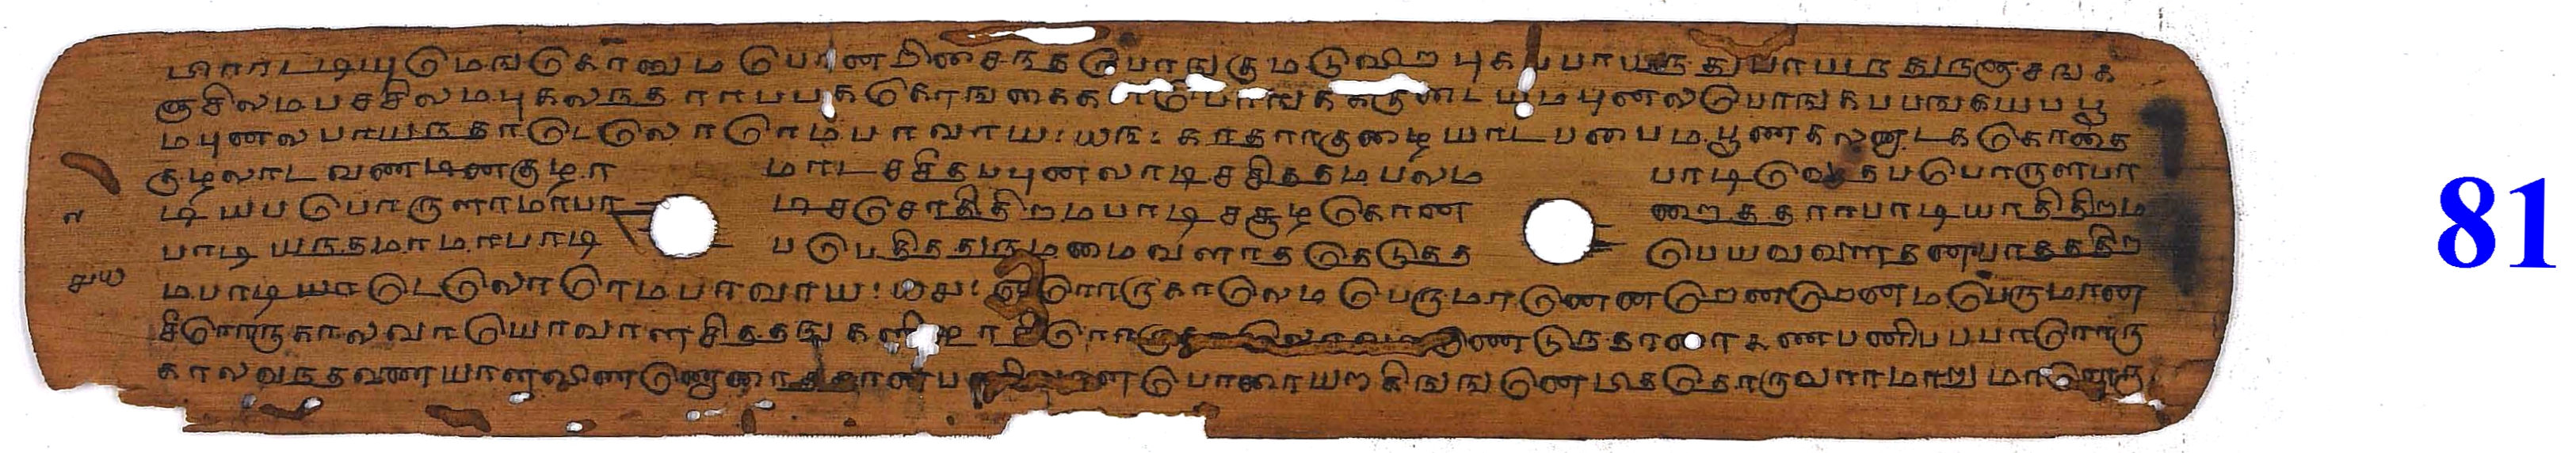 பிராட்டியுமெங்கோனும போனறிசைநத பொஙகு மடுவிற புகபபாயநதுபாயநதுநஞசங
ஞசிலமபசசிலமபுகலநதாரபபகொஙகைகள பொஙககுடையுமபுனலபொஙகபபஙகயபபூ
மபுனலபாயநதாடேலோரெமபாவாய காதாரகுழையாடபபைமபூணகலனாடககோதை
குழலாடவணடினகுழா மாடசசீதபபுனலாடிசசிததமபலம பாடிவேதபபொருளபா
டியபபொருளாமாபா டிசசோதிதிறமபாடிசசூழகொன றைததாரபாடியாதிதிறம
பாடியநதமாமாபாடி பபேதிததுநமமைவளரததெடுதத பெயவளைதனபாதததிற
மபாடியாடேலோரெமபாவாய ஓரொருகாலெமபெருமானெனறெனறேநமபெருமான
சீரொருகாலவாயோவாளசிததஙகளிகூரநீரொருகாலோவாநெடுநதாரைகணபனிபபபபாரொரு
காலவநதனையாளவிணணோரைததானபணியாளபேரரையறகிஙஙனேபிததொருவராமாறுமாரொரு